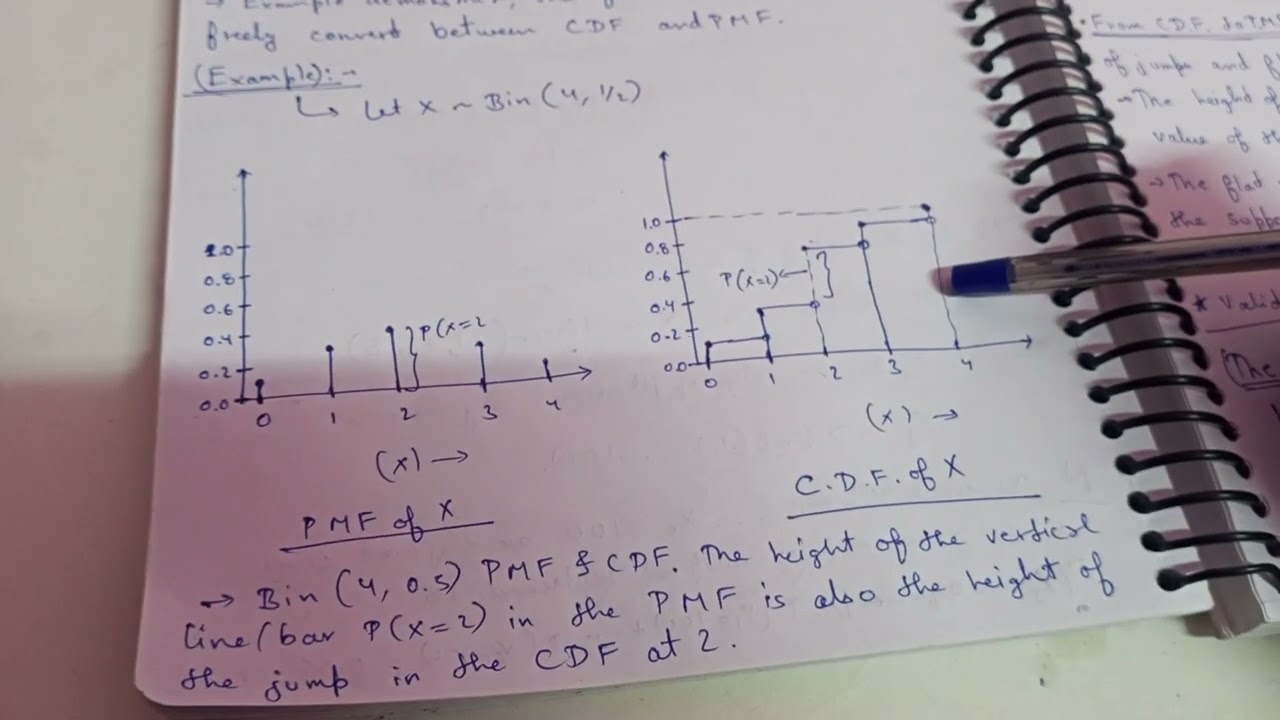 freely convert between CDF and PMF.
(Example):-
↳ Let X ~ Bin (4, 1/2)
1.0
0.8
0.6
0.4
0.2
0.0
P(X=2
0 1 2 3 4
(x) →
PMF of X
1.0
0.8
0.6
0.4
0.2
0.0
P(X=2)
0 1 2 3 4
(x) →
C.D.F. of X
→ Bin (4, 0.5) PMF & CDF. The height of the vertical
line/bar P(X=2) in the PMF is also the height of
the jump in the CDF at 2.
• From C.D.F. to PM
of jumps and
→ The height of
value of
→ The flat
the
* Valid
(The